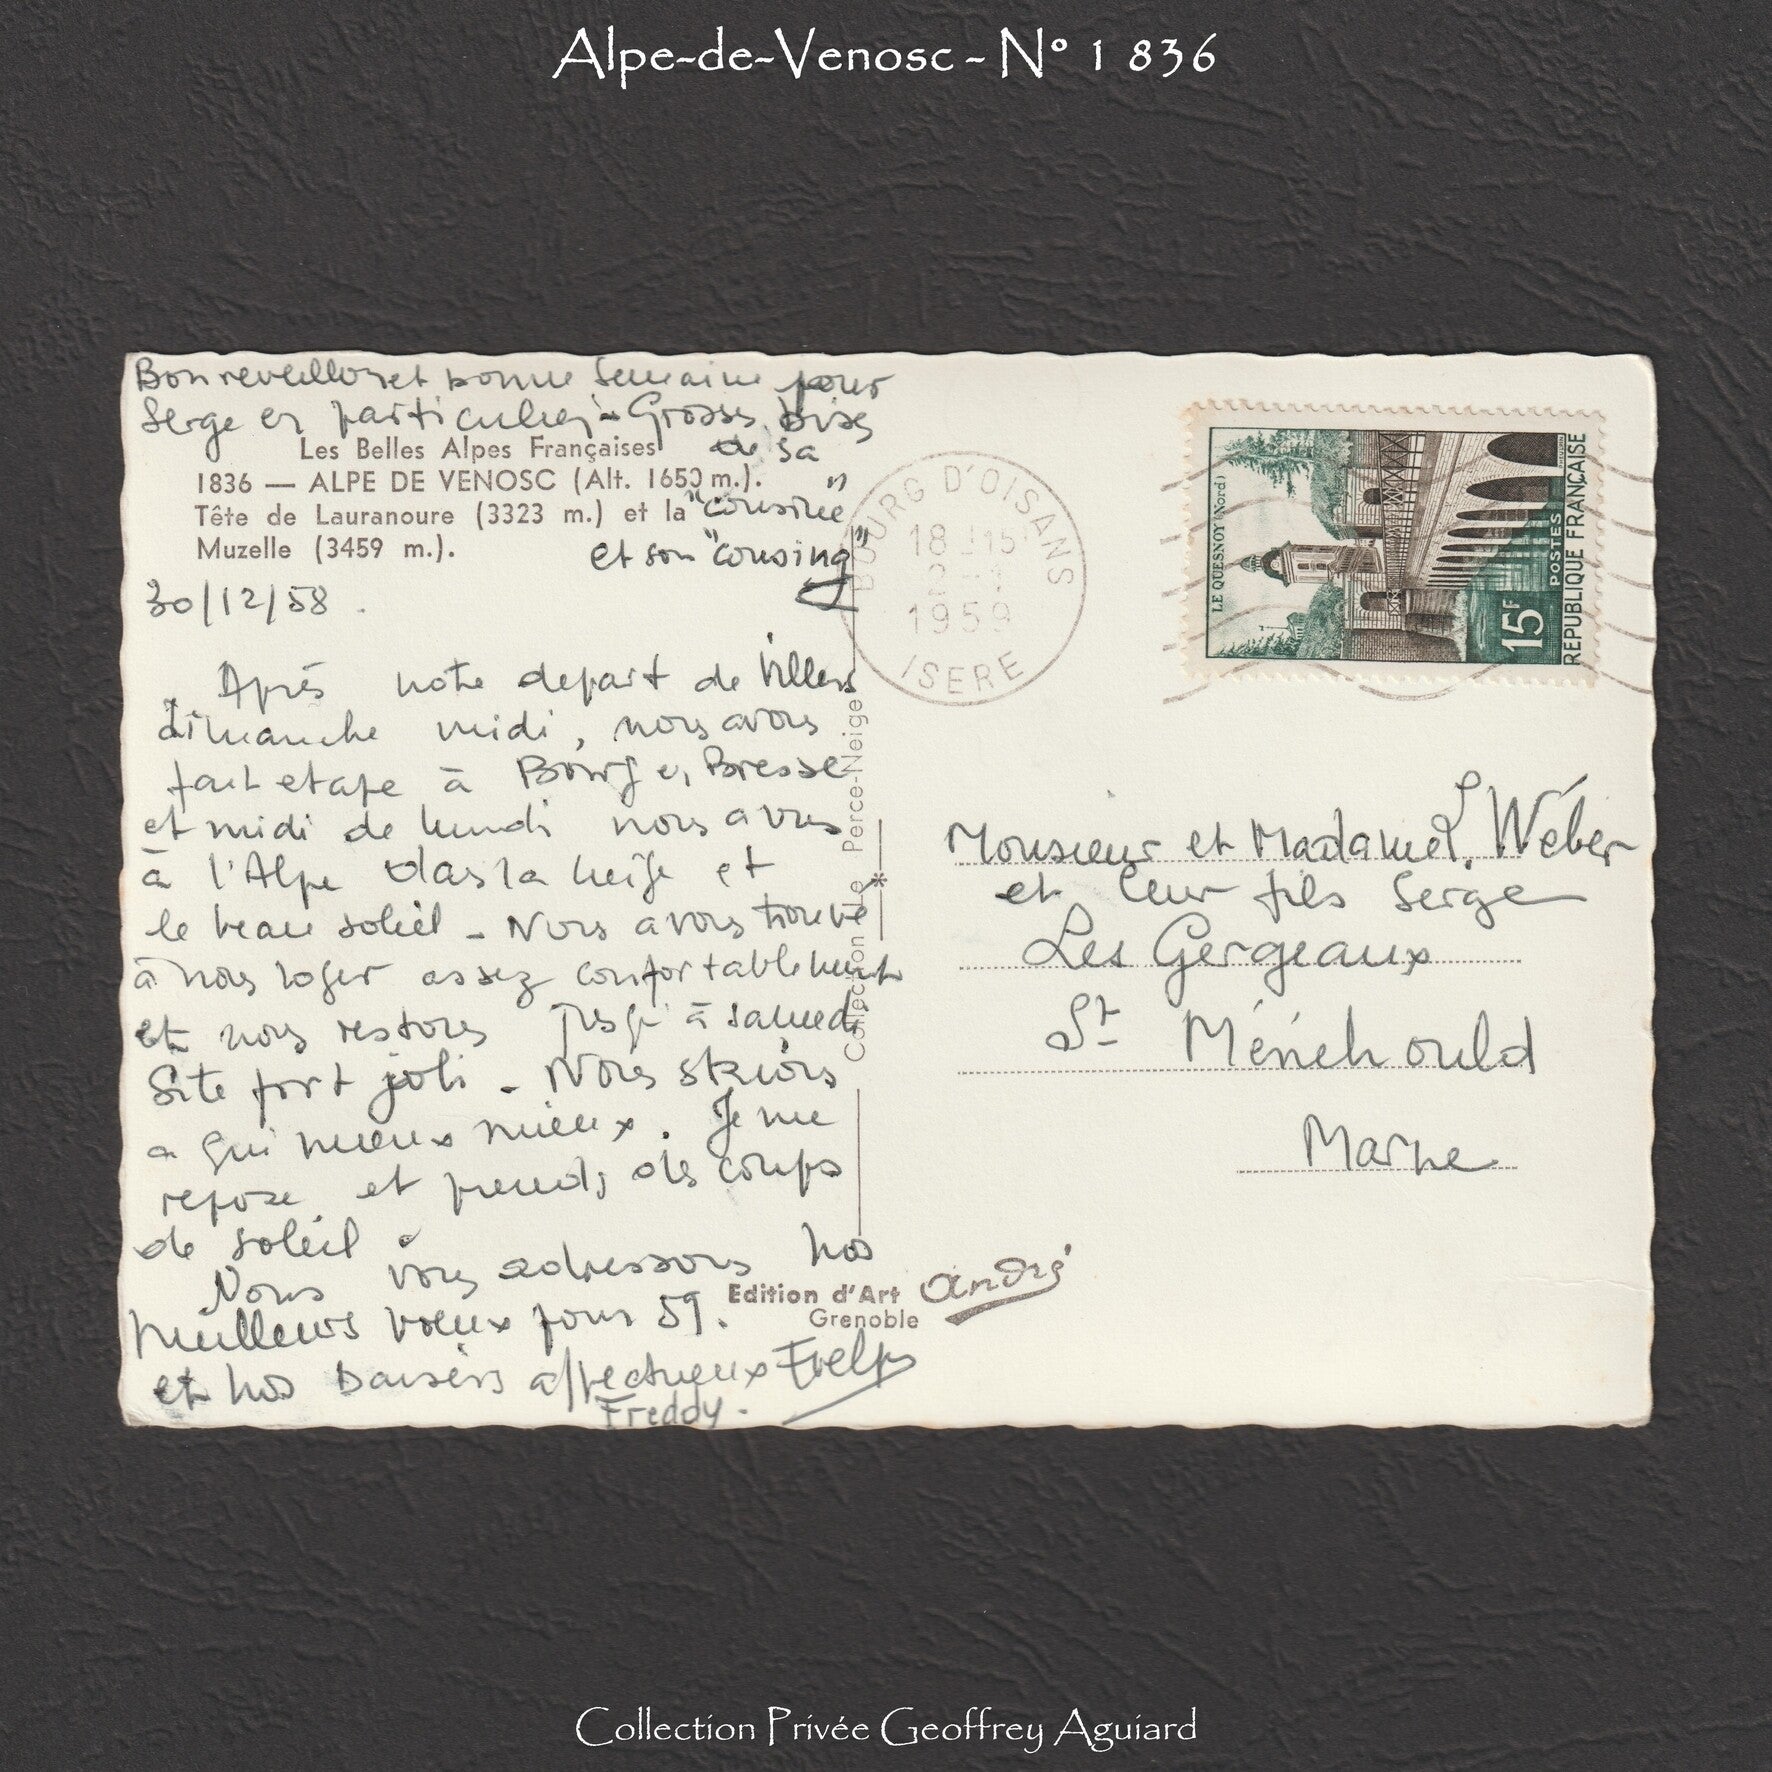 Alpe-de-Venosc - N° 1 836
Bon reveillon et bonne semaine pour
Serge en particulier - Grosses bises
de sa
"cousine"
et son "cousing"
Les Belles Alpes Françaises
1836 — ALPE DE VENOSC (Alt. 1650 m.).
Tête de Lauranoure (3323 m.) et la
Muzelle (3459 m.).
30/12/58.
Après notre depart de Villers
dimanche midi, nous avons
fait etape à Bourg en Bresse
et midi de lundi nous avons
à l'Alpe dans la neige et
le beau soleil - Nous avons trouvé
à nous loger assez confortablement
et nous restons jusqu'à samedi
Site fort joli - Nous skions
a qui mieux mieux. Je me
repose et prends des coups
de soleil.
Nous vous adressons nos
meilleurs voeux pour 59.
et nos baisers affectueux
Freddy.
Collection Le Perce-Neige
BOURG D'OISANS
18 15
1959
ISERE
LE QUESNOY (Nord)
15F
POSTES
REPUBLIQUE FRANÇAISE
Monsieur et Madame L. Wéber
et leur fils Serge
Les Gergeaux
St Ménehould
Marne
Edition d'Art André
Grenoble
Collection Privée Geoffrey Aguiard